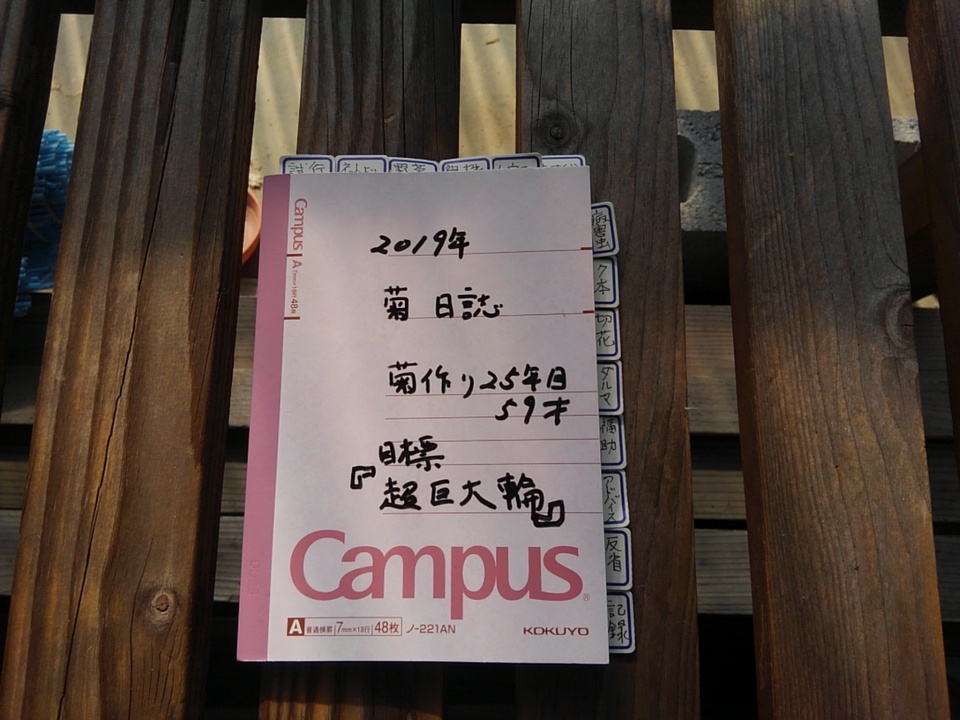 試行
野菜
2019年
菊 日誌
菊作り25年目
59才
目標
『超巨大輪』
Campus
A 普通横罫 7mm×18行 48枚 ノ-221AN
KOKUYO
Campus A 7mm×18行 48枚
病害虫
7本
切花
ダルマ
福助
アドバイス
反省
記録